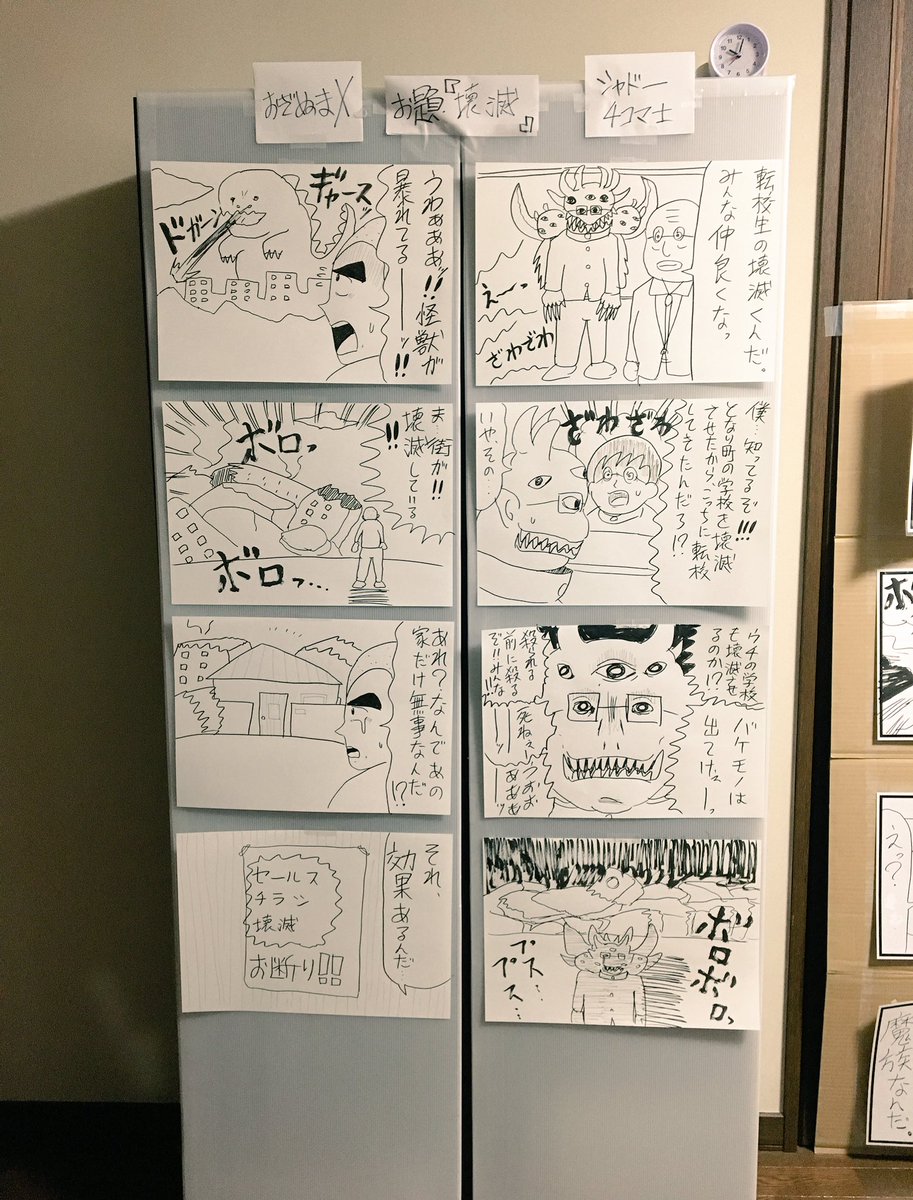 おざぬまX
お題『壊滅』
シャドー
4コマ士
うわぁぁぁ!!怪獣が
暴れてるーーッ!!
ギャース
ドガーン
ま…街が!!
壊滅している
!!
ボロッ
ボロッ…
あれ?なんであの
家だけ無事なんだ
!?
それ、
効果あるんだ…
セールス
チラシ
壊滅
お断り!!
転校生の壊滅くんだ。
みんな仲良くなっ
えーっ
ざわざわ
僕…知ってるぞ!!!
となり町の学校を壊滅
させたから、こっちに転校
してきたんだろ!?
ざわざわ
いや、その…
ウチの学校
も壊滅させ
るのか!?
バケモノは
出てけぇーっ
殺される
前に殺る
ぞ!!みんな
死ねぇー
うおお
ああああ
ボロボロッ
プス…
プス…
ボ
えっ?
魔族なんだ。